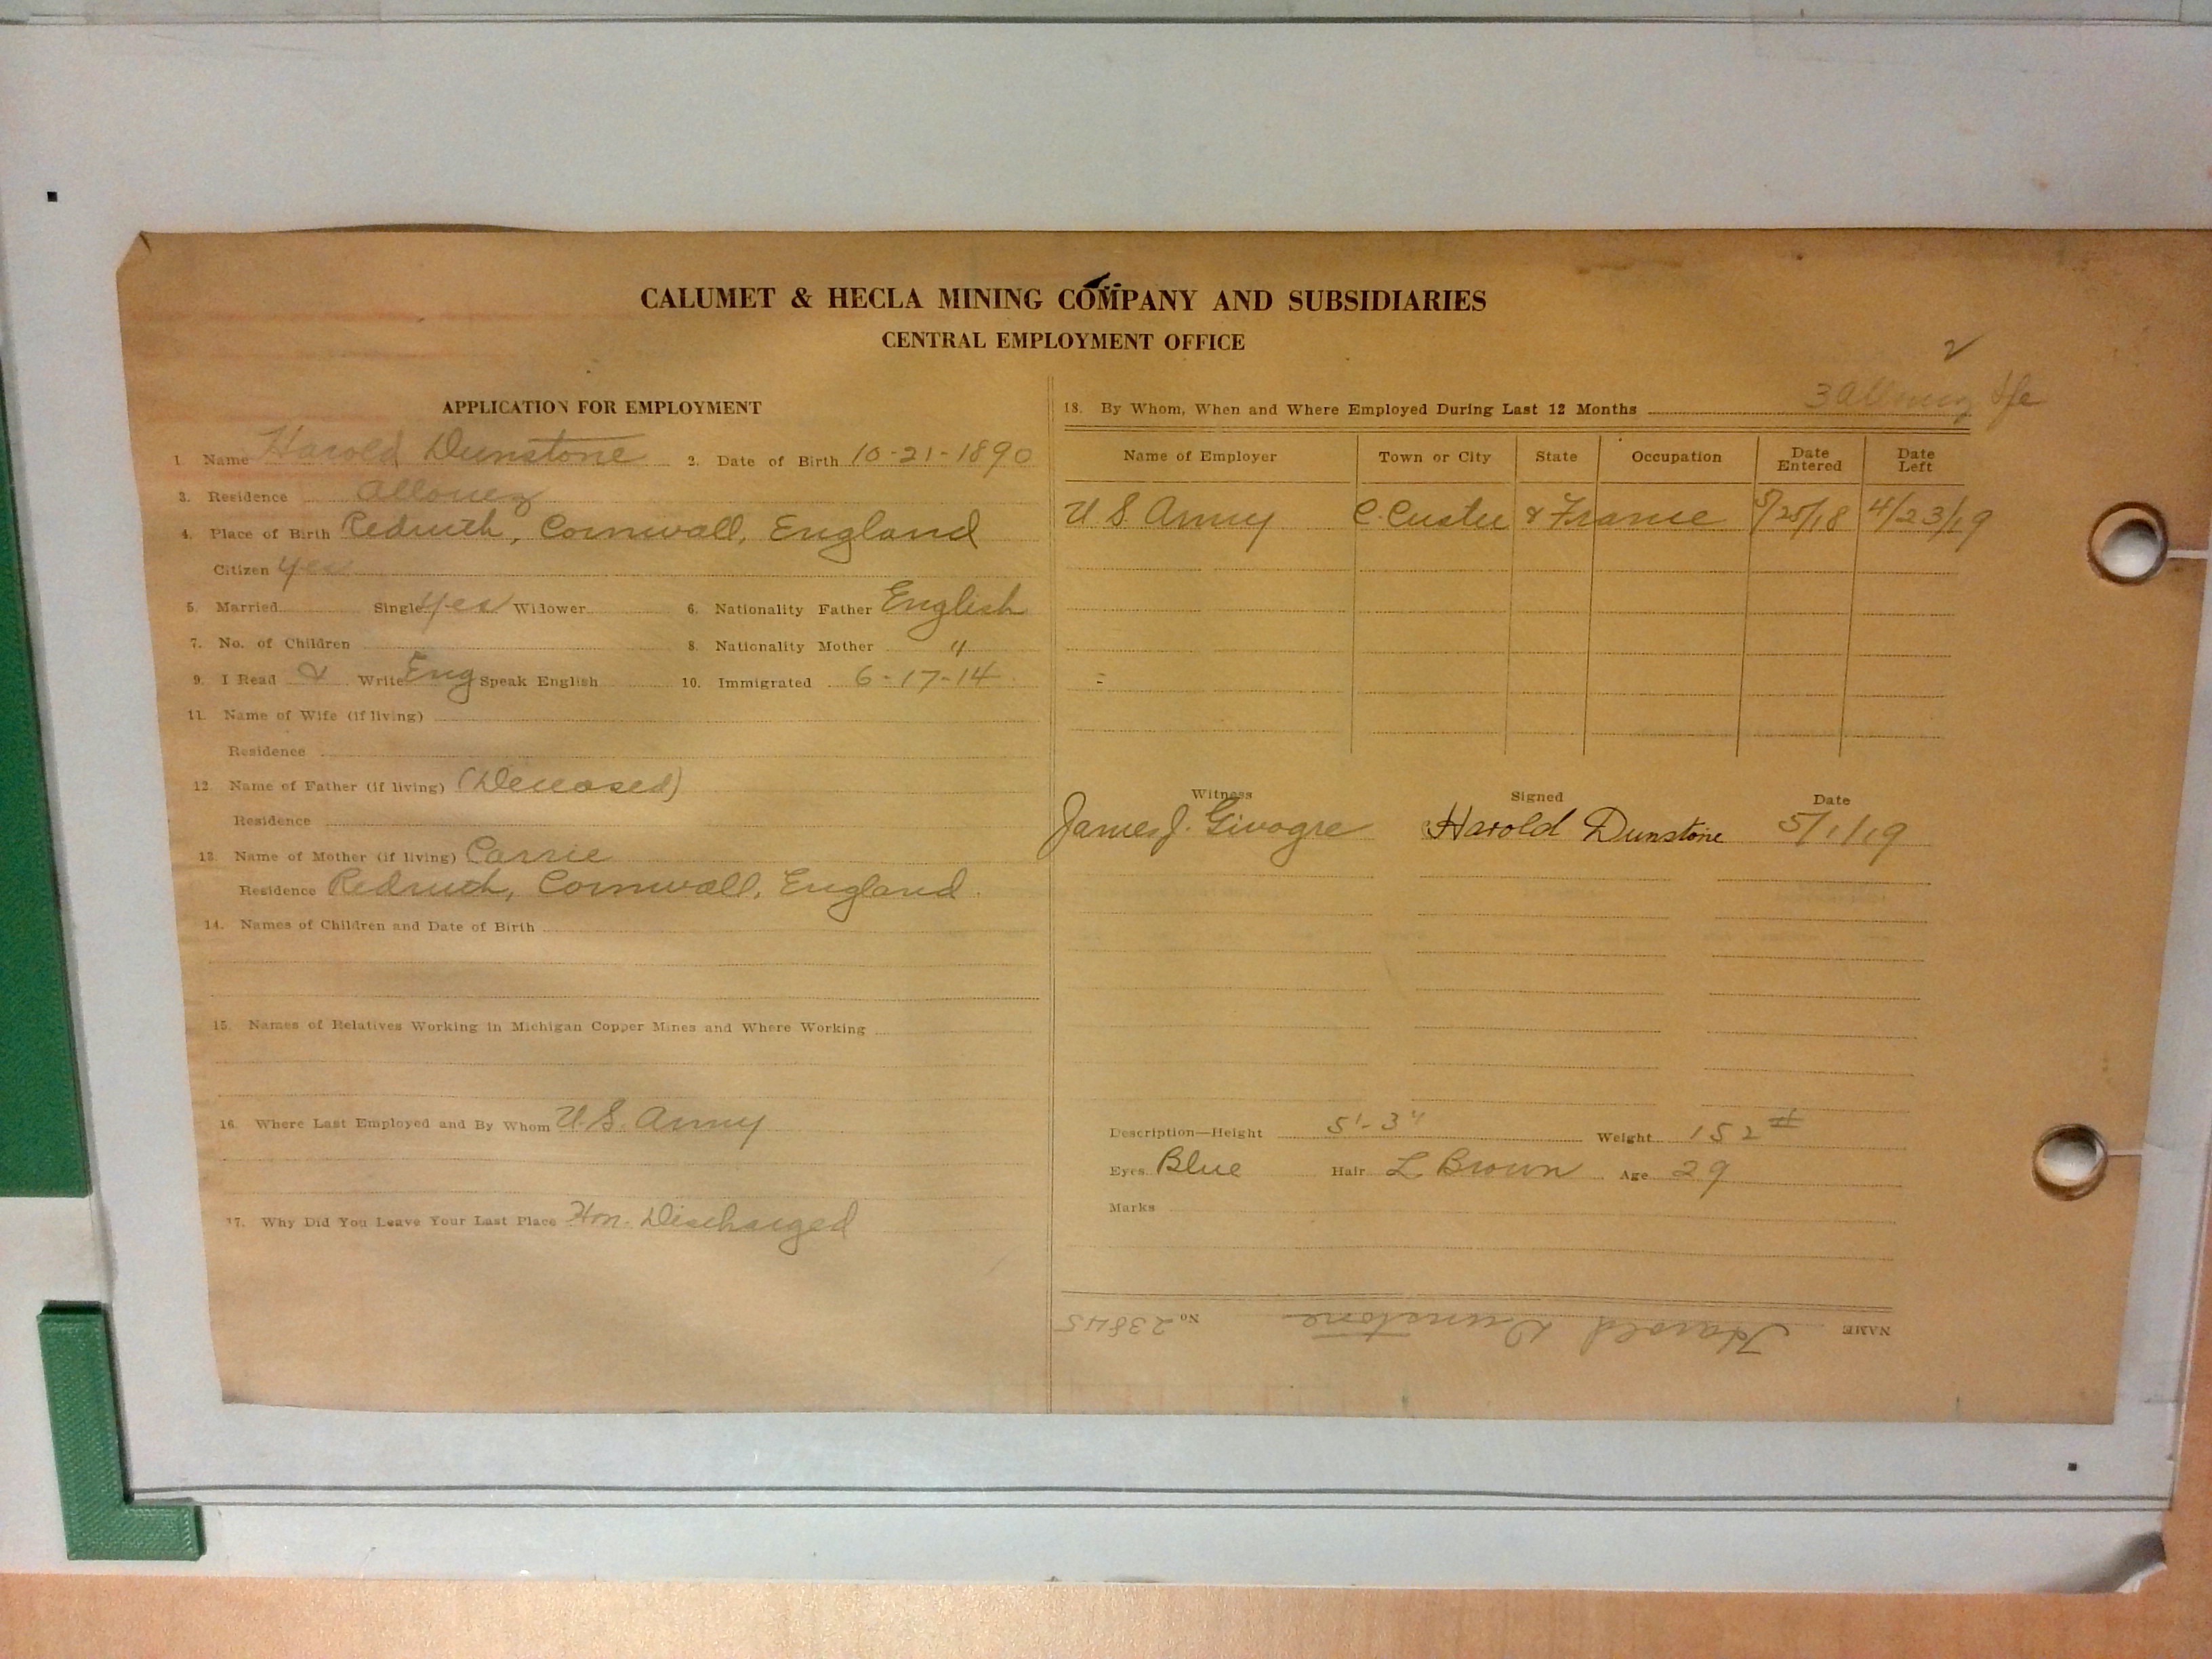 CALUMET & HECLA MINING COMPANY AND SUBSIDIARIES
CENTRAL EMPLOYMENT OFFICE
APPLICATION FOR EMPLOYMENT
1. Name Harold Dunstone 2. Date of Birth 10-21-1890
3. Residence Allouez
4. Place of Birth Redruth, Cornwall, England
Citizen Yes
5. Married Single Yes Widower 6. Nationality Father English
7. No. of Children 8. Nationality Mother "
9. I Read & Write Eng Speak English 10. Immigrated 6-17-14
11. Name of Wife (if living)
Residence
12. Name of Father (if living) (Deceased)
Residence
13. Name of Mother (if living) Carrie
Residence Redruth, Cornwall, England.
14. Names of Children and Date of Birth
15. Names of Relatives Working in Michigan Copper Mines and Where Working
16. Where Last Employed and By Whom U.S. Army
17. Why Did You Leave Your Last Place Hon. Discharged
2
18. By Whom, When and Where Employed During Last 12 Months 3 Allouez
Name of Employer Town or City State Occupation Date Entered Date Left
U.S. Army C. Custer & France /25/18 4/23/19
Witness Signed Date
James J. Harold Dunstone 5/1/19
Description—Height 5'-3" Weight 152#
Eyes Blue Hair L Brown Age 29
Marks
NAME Harold Dunstone No 23845